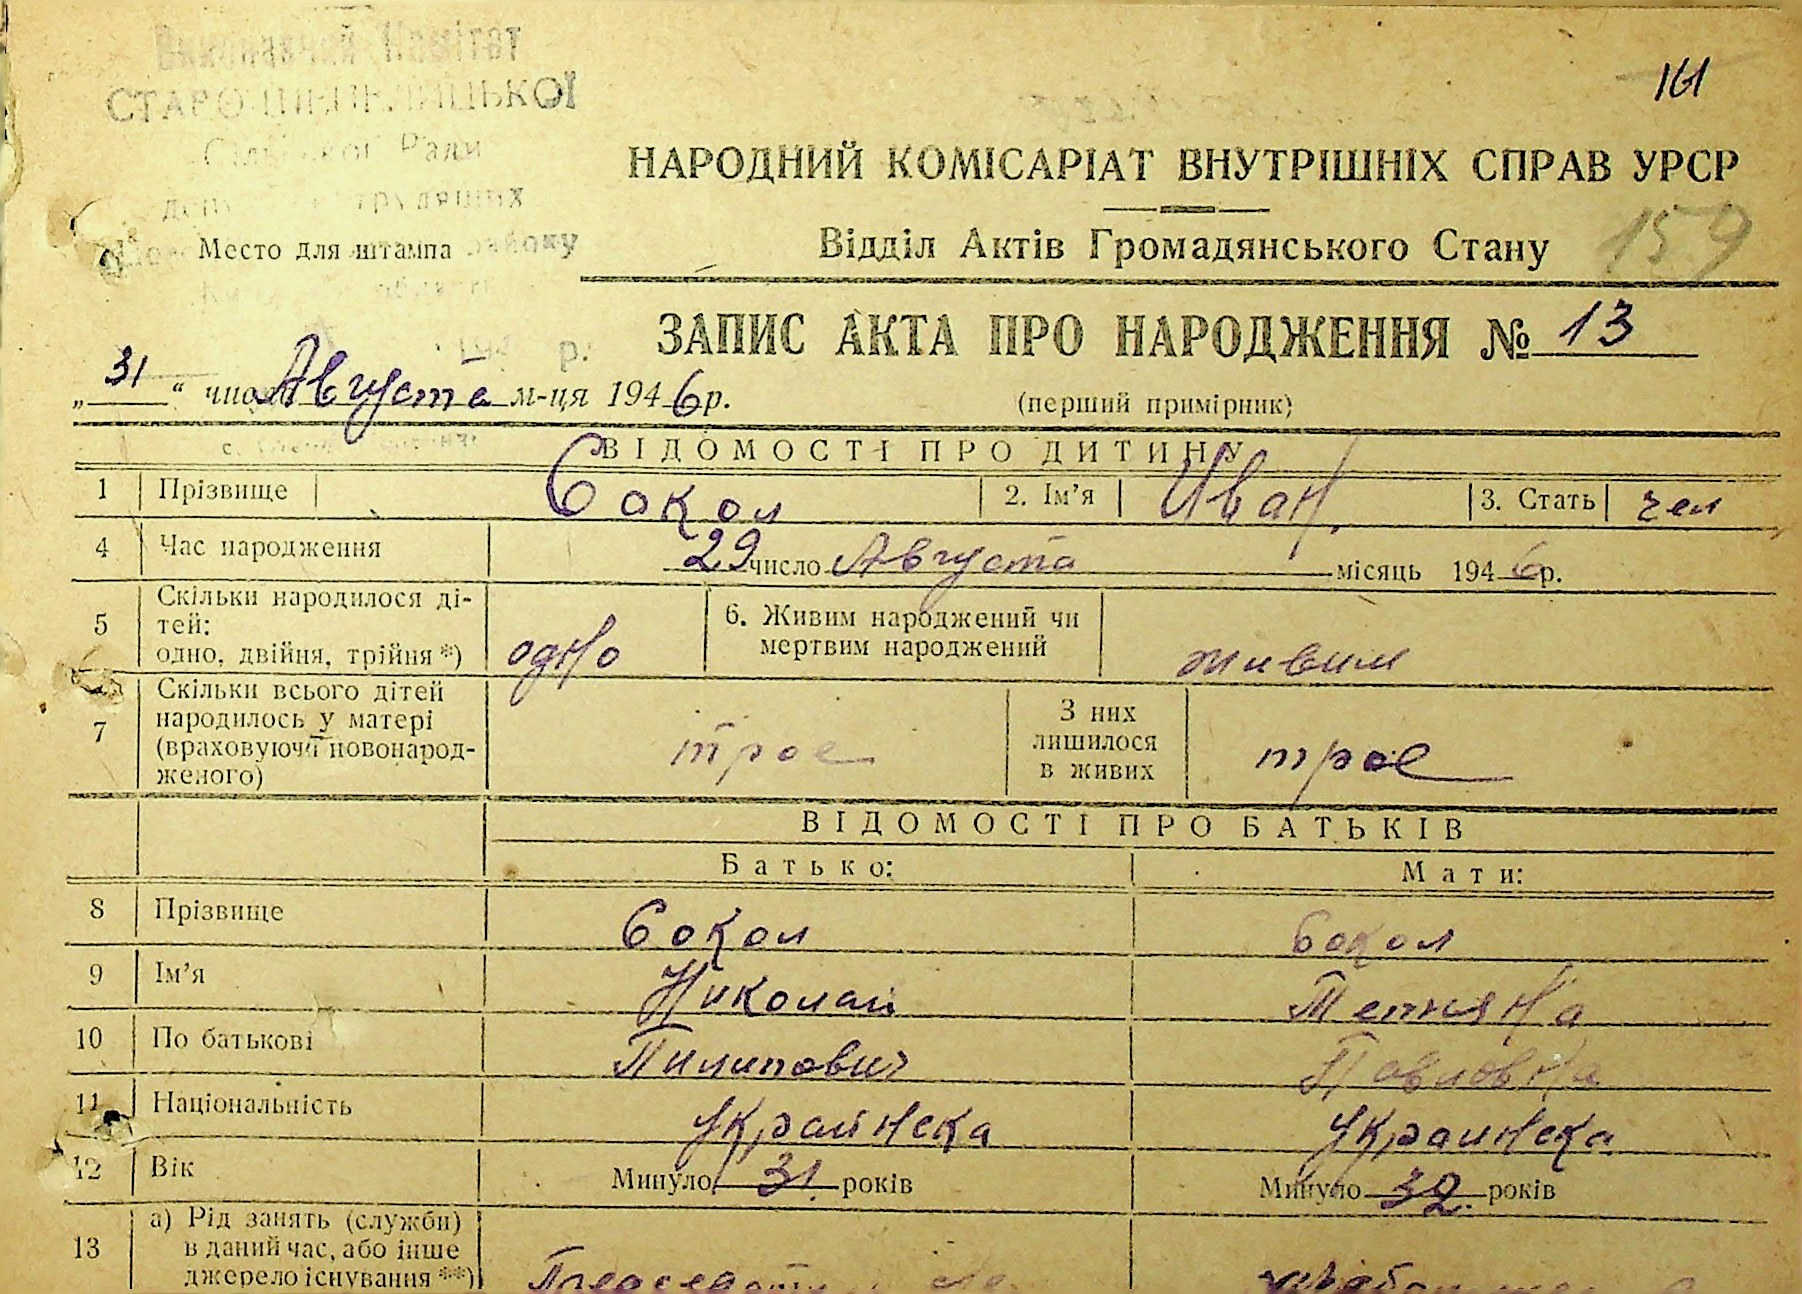 Виконавчий Комітет
Сільської Ради
трудящих
161
НАРОДНИЙ КОМІСАРІАТ ВНУТРІШНІХ СПРАВ УРСР
Место для штампа району
Відділ Актів Громадянського Стану 159
ЗАПИС АКТА ПРО НАРОДЖЕННЯ № 13
р.
„31“ числа Августа м-ця 1946 р.
(перший примірник)
ВІДОМОСТІ ПРО ДИТИНУ
1 Прізвище Сокол 2. Ім’я Иван 3. Стать чел
4 Час народження 29 число Августа місяць 1946 р.
5 Скільки народилося ді-
тей:
одно, двійня, трійня *) одно
6. Живим народжений чи
мертвим народжений живим
7 Скільки всього дітей
народилось у матері
(враховуючи новонарод-
женого) трое
З них
лишилося
в живих трое
ВІДОМОСТІ ПРО БАТЬКІВ
Батько: Мати:
8 Прізвище Сокол Сокол
9 Ім’я Николай Тетяна
10 По батькові Пилипович Павловна
11 Національність Украинска Украинска
12 Вік Минуло 31 років Минуло 32 років
13 а) Рід занять (служби)
в даний час, або інше
джерело існування **)